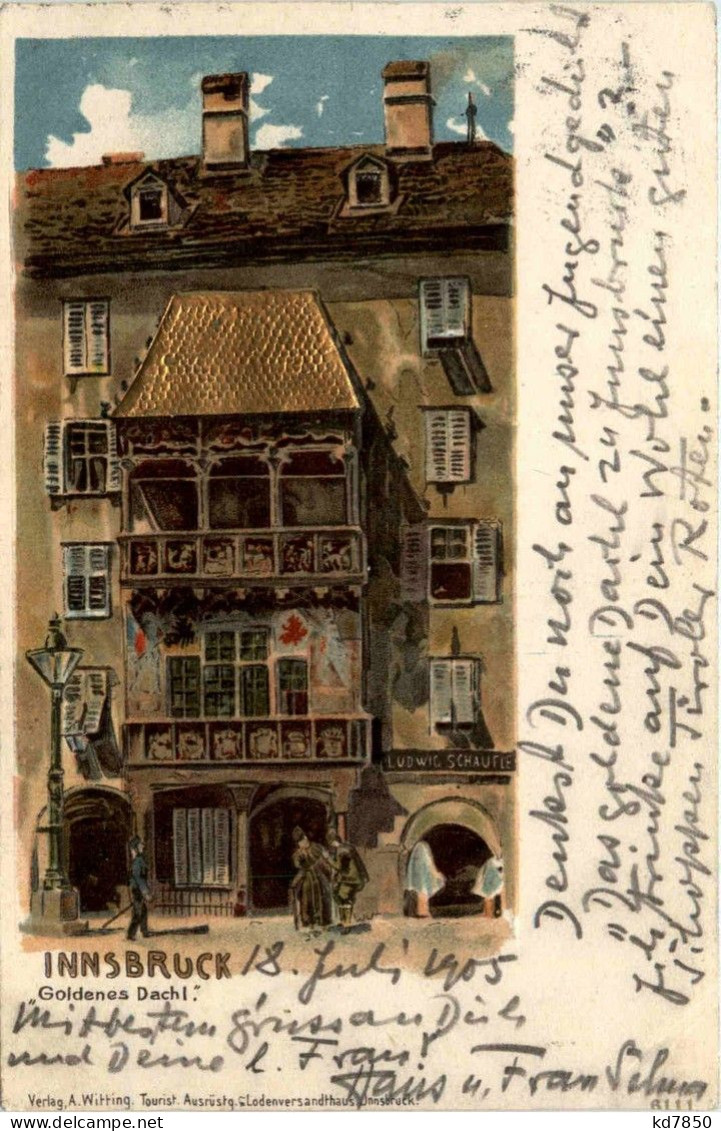 LUDWIG SCHAUFLE
INNSBRUCK 18. Juli 1905
"Goldenes Dachl."
Mit bestem grüss an Dich
und Deine l. Frau!
Hans u. Frau
Verlag, A. Witting. Tourist. Ausrüstg. & Lodenversandthaus, Innsbruck.
6111
Denkst Du noch an unser Jugendgedicht
"Das goldene Dachl zu Innsbruck"?
Ich trinke auf Dein Wohl einen guten
Schoppen Tiroler Roten.
kd7850